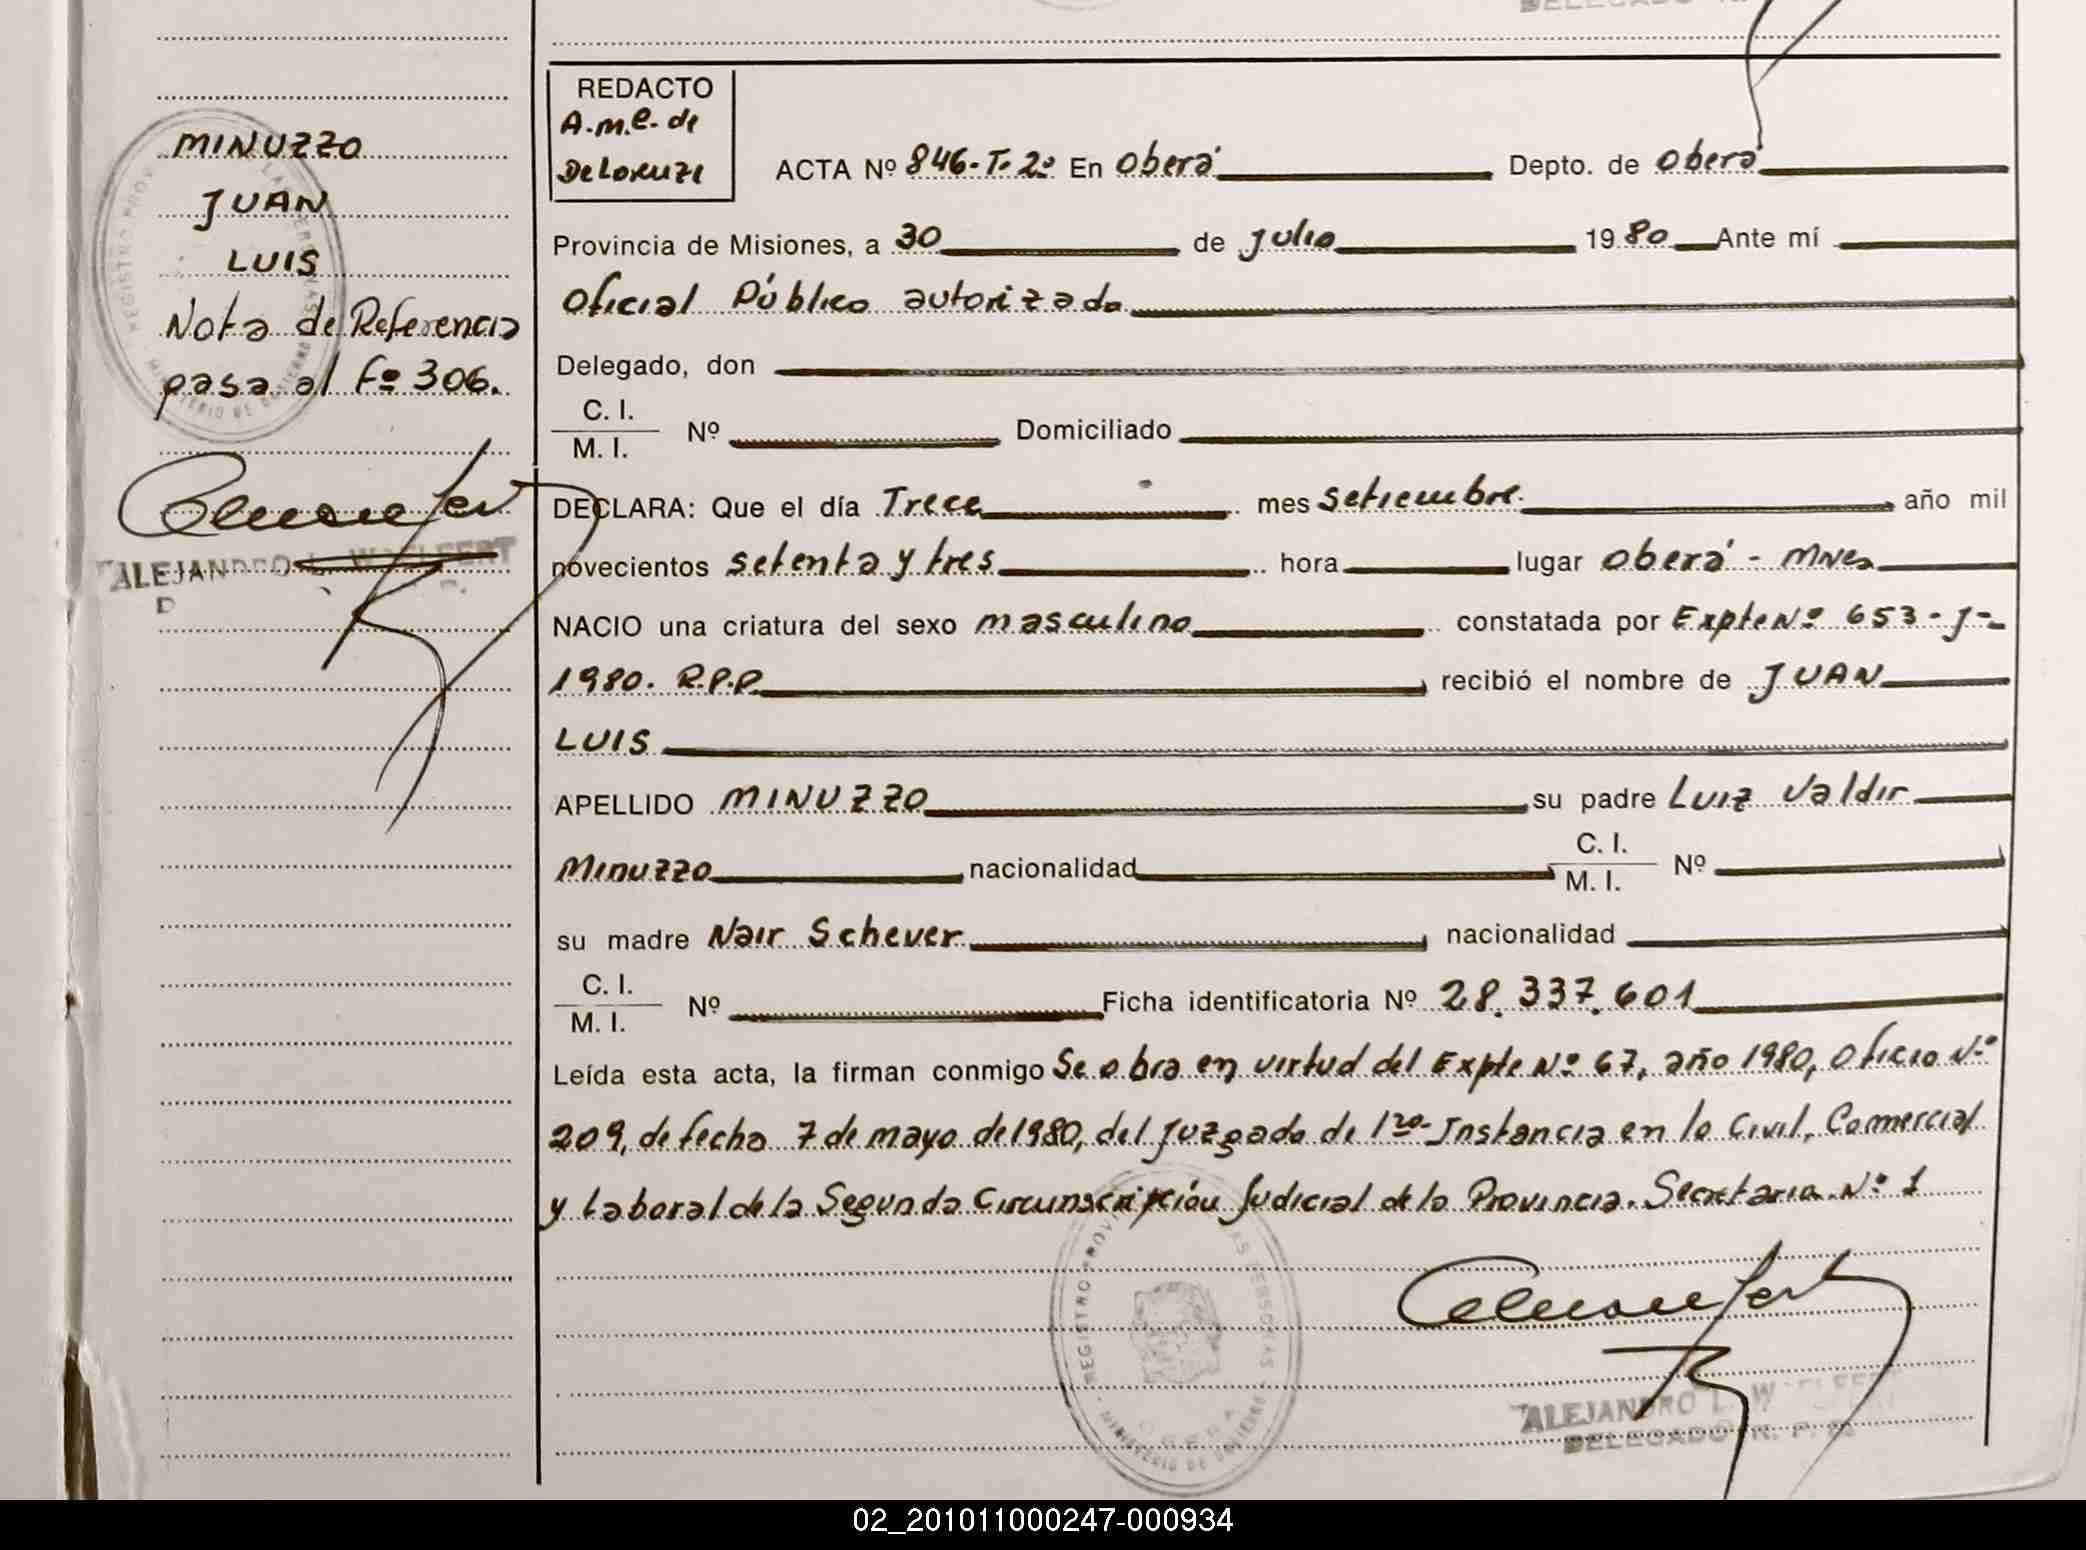 MINUZZO
JUAN
LUIS
Nota de Referencia
pasa al Fº 306.
ALEJANDRO L. WAELFERT
REDACTO
A.M.E. de
DeLorenzi
ACTA Nº 846-T. 2º En Oberá Depto. de Oberá
Provincia de Misiones, a 30 de Julio 1980 Ante mí
Oficial Público autorizado
Delegado, don
C. I.
M. I. Nº Domiciliado
DECLARA: Que el día Trece mes Setiembre año mil
novecientos setenta y tres hora lugar Oberá - Mnes
NACIO una criatura del sexo masculino constatada por Expte Nº 653-J-
1980. R.P.P. recibió el nombre de JUAN
LUIS
APELLIDO MINUZZO su padre Luiz Valdir
Minuzzo nacionalidad C. I. M. I. Nº
su madre Nair Schever nacionalidad
C. I.
M. I. Nº Ficha identificatoria Nº 28.337.601
Leída esta acta, la firman conmigo Se obra en virtud del Expte Nº 67, año 1980, Oficio Nº
209, de fecha 7 de mayo de 1980, del Juzgado de 1ra. Instancia en lo Civil, Comercial
y Laboral de la Segunda Circunscripción Judicial de la Provincia. Secretaria Nº 1
REGISTRO PROV
MINISTERIO DE GOBIERNO
OBERA
ALEJANDRO L. W
DELEGADO R. P. P.
02_201011000247-000934